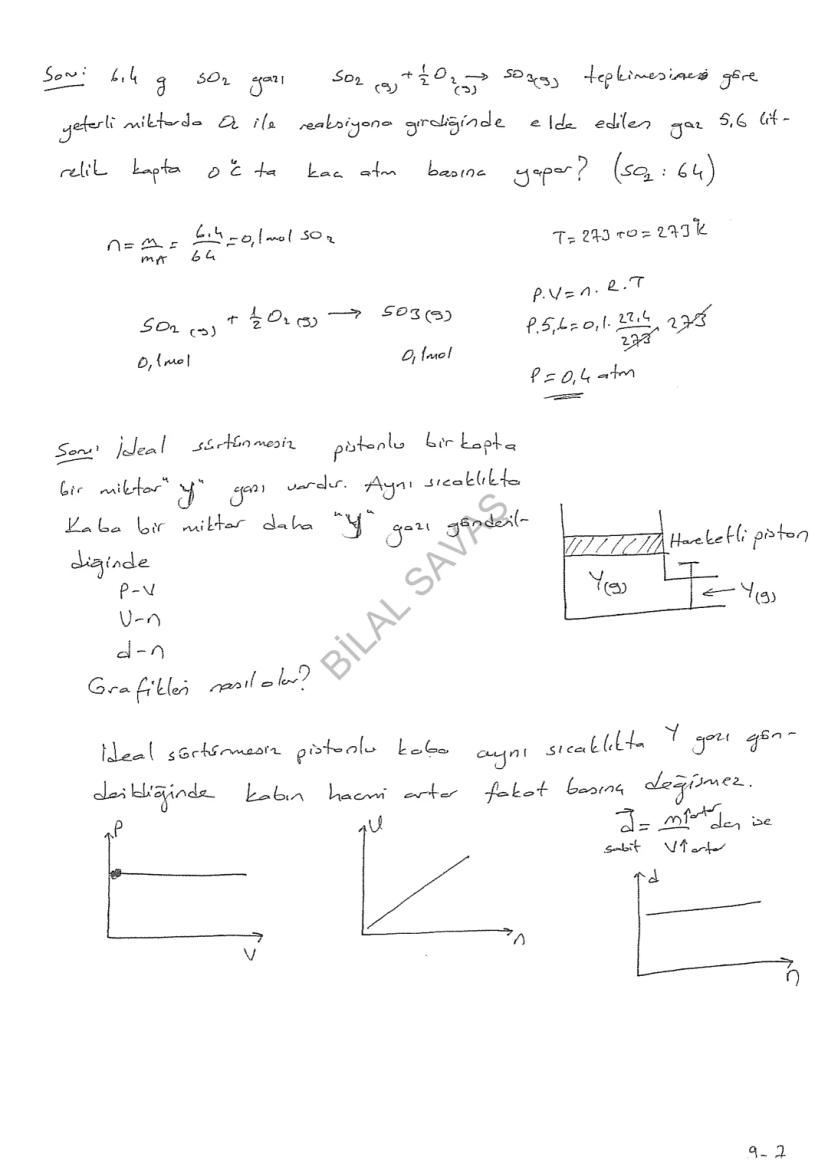 Soru: 6,4 g SO2 gazı SO2 (g) + 1/2 O2 (g) → SO3(g) tepkimesine göre
yeterli miktarda O2 ile reaksiyona girdiğinde elde edilen gaz 5,6 lit-
relik kapta 0°C ta kaç atm basınç yapar? (SO2 : 64)
n = m/mA = 6,4/64 = 0,1 mol SO2
T = 273 + 0 = 273°K
P.V = n. R.T
SO2 (g) + 1/2 O2 (g) → SO3 (g)
P.5,6 = 0,1. 22,4/273 . 273
0,1 mol 0,1 mol
P = 0,4 atm
Soru: İdeal sürtünmesiz pistonlu bir kapta
bir miktar "Y" gazı vardır. Aynı sıcaklıkta
Kaba bir miktar daha "Y" gazı gönderil-
diğinde
P-V
V-n
d-n
Grafikleri nasıl olur?
Hareketli piston
Y(g)
← Y(g)
BİLAL SAVAS
İdeal sürtünmesiz pistonlu kaba aynı sıcaklıkta Y gazı gön-
derildiğinde kabın hacmi artar fakat basınç değişmez.
d = m↑artar / V↑artar den ise
sabit
P
V
V
n
d
n
9-7